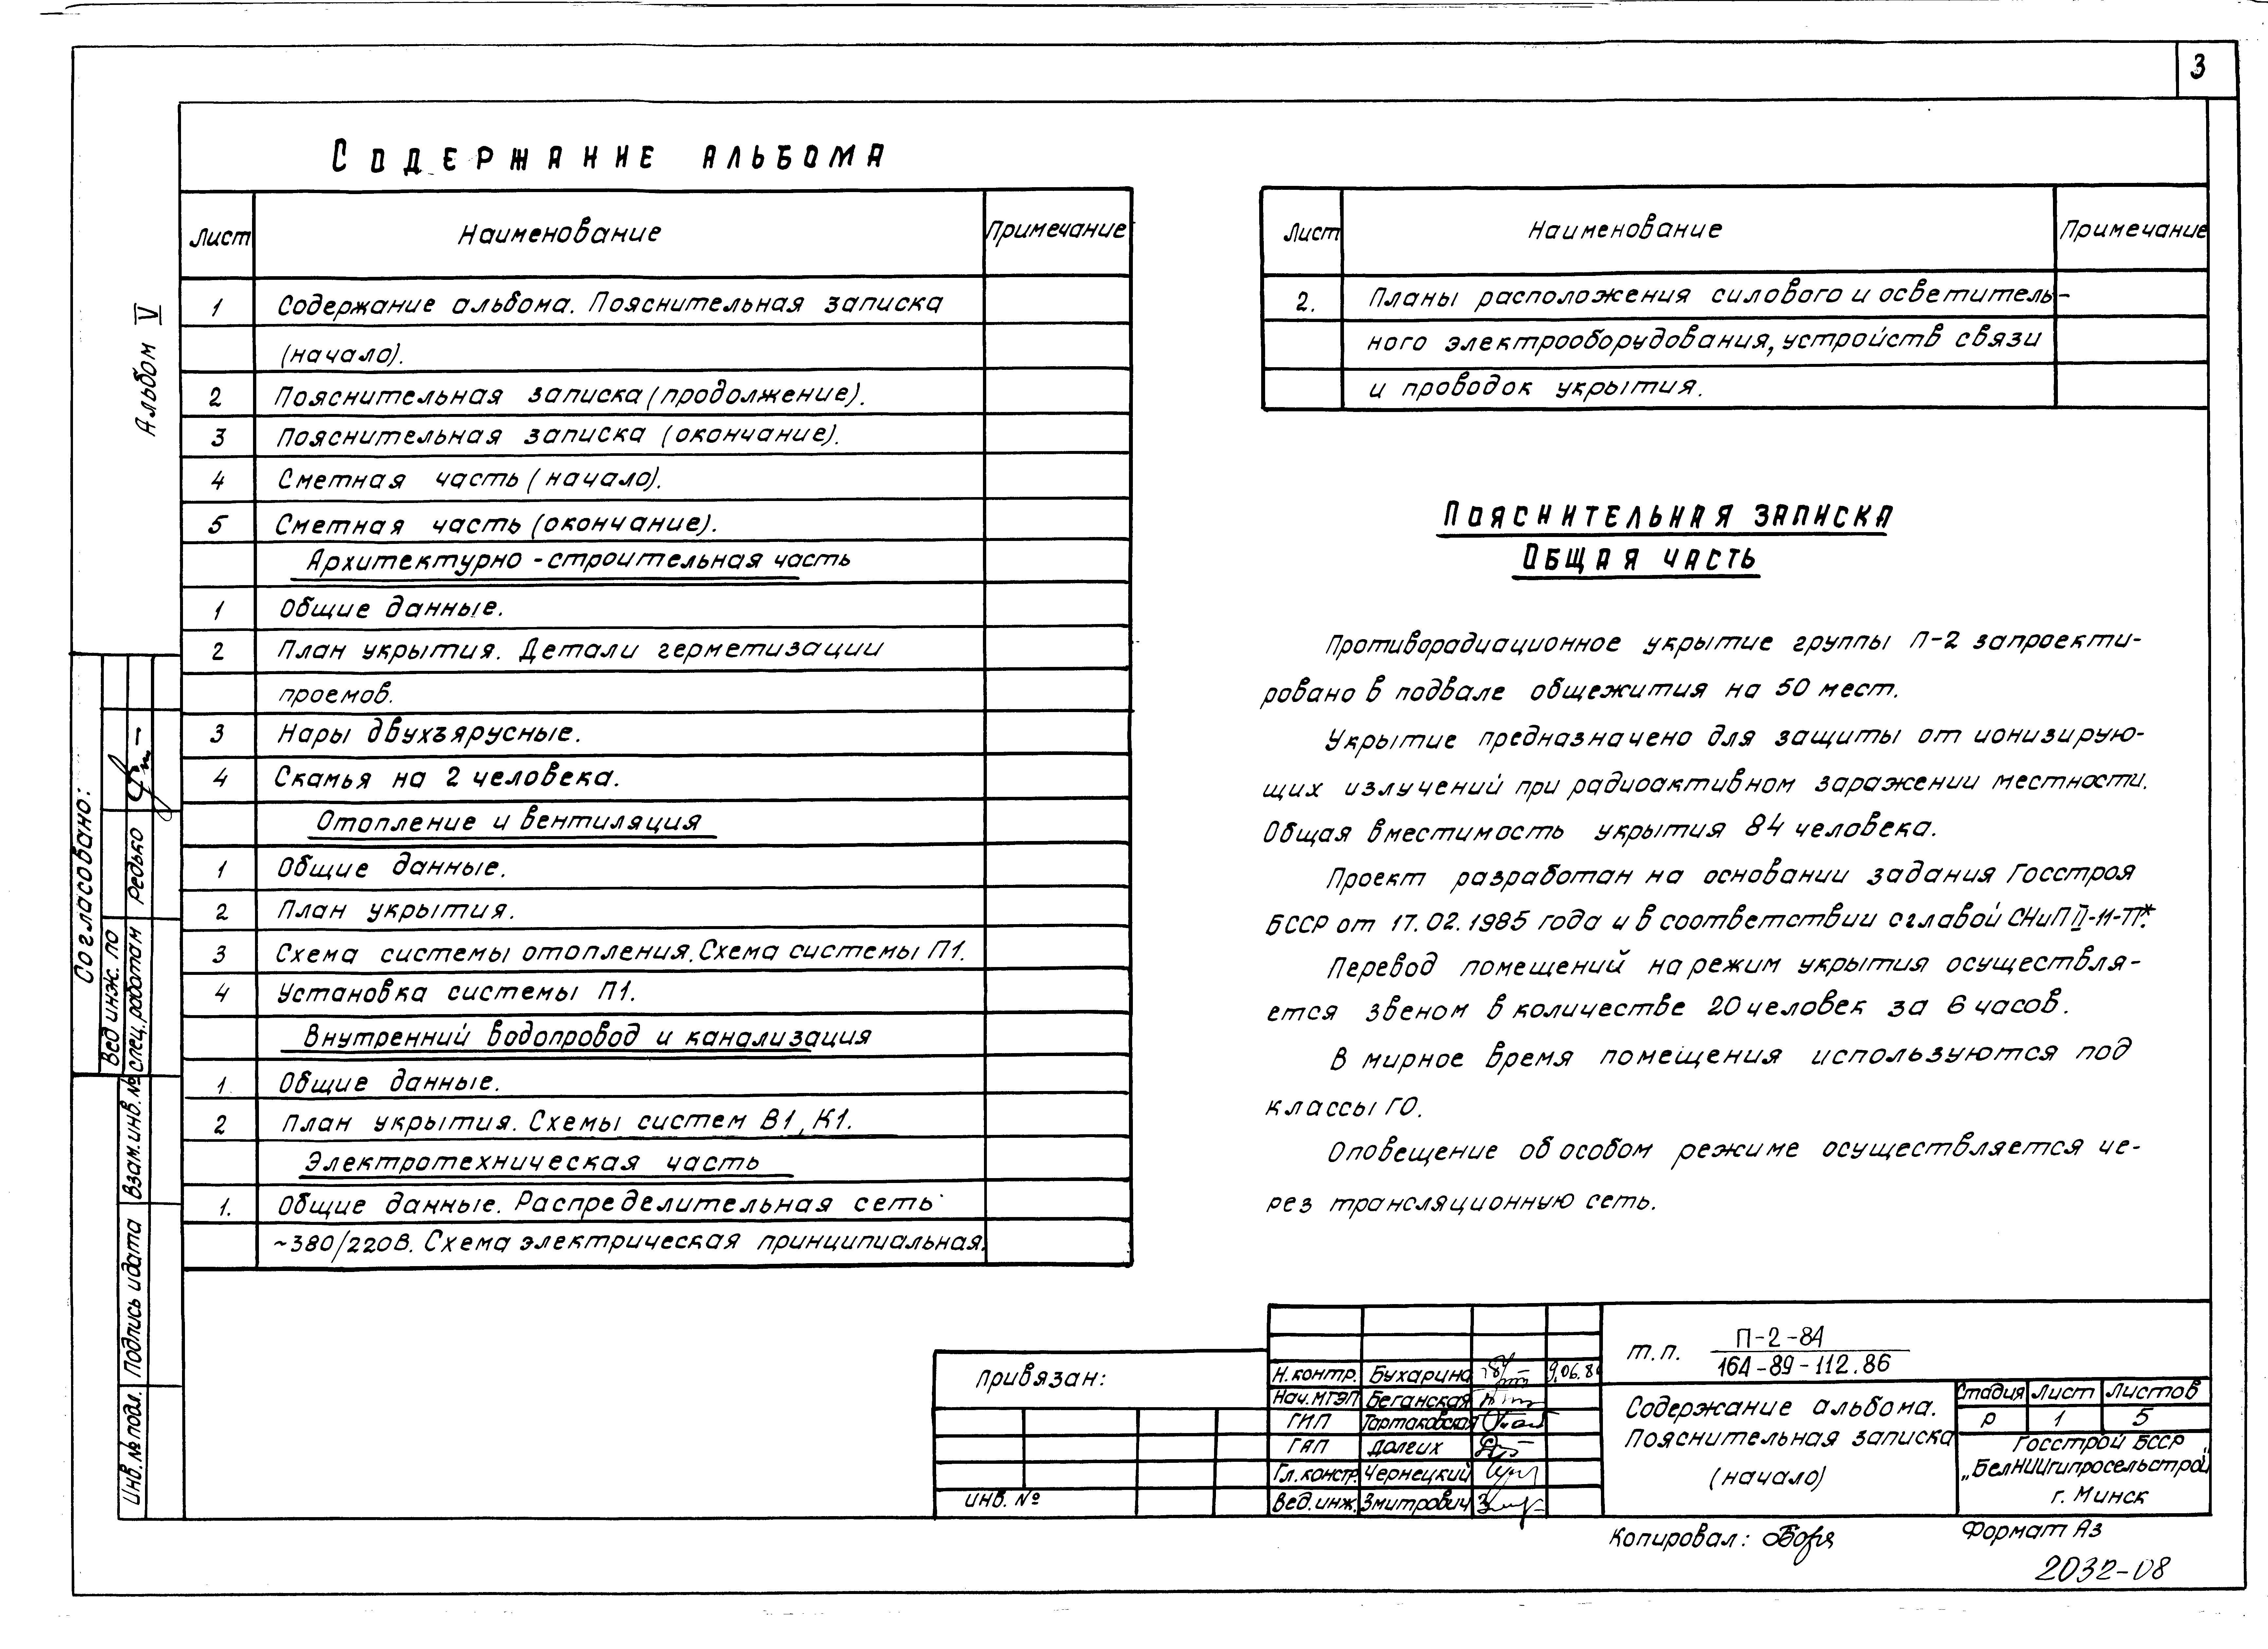 3
Содержание альбома
Лист Наименование Примечание
1 Содержание альбома. Пояснительная записка
(начало).
2 Пояснительная записка (продолжение).
3 Пояснительная записка (окончание).
4 Сметная часть (начало).
5 Сметная часть (окончание).
Архитектурно-строительная часть
1 Общие данные.
2 План укрытия. Детали герметизации
проемов.
3 Нары двухъярусные.
4 Скамья на 2 человека.
Отопление и вентиляция
1 Общие данные.
2 План укрытия.
3 Схема системы отопления. Схема системы П1.
4 Установка системы П1.
Внутренний водопровод и канализация
1 Общие данные.
2 План укрытия. Схемы систем В1, К1.
Электротехническая часть
1. Общие данные. Распределительная сеть
~380/220В. Схема электрическая принципиальная.
Лист Наименование Примечание
2. Планы расположения силового и осветитель-
ного электрооборудования, устройств связи
и проводок укрытия.
Пояснительная записка
Общая часть
Противорадиационное укрытие группы П-2 запроекти-
ровано в подвале общежития на 50 мест.
Укрытие предназначено для защиты от ионизирую-
щих излучений при радиоактивном заражении местности.
Общая вместимость укрытия 84 человека.
Проект разработан на основании задания Госстроя
БССР от 17.02.1985 года и в соответствии с главой СНиП II-11-77*.
Перевод помещений на режим укрытия осуществля-
ется звеном в количестве 20 человек за 6 часов.
В мирное время помещения используются под
классы ГО.
Оповещение об особом режиме осуществляется че-
рез трансляционную сеть.
Альбом V
Согласовано:
Вед инж. по
спец. работам Редько
Взам. инв. №
Подпись и дата
Инв. № подл.
Привязан:
инв. №
Н. контр. Бухарина
Нач. МТЭП Беганская
ГИП Тартаковская
ГАП Долгих
Гл. констр. Чернецкий
Вед. инж. Змитрович
т.п. П-2-84
164-89-112.86
Содержание альбома.
Пояснительная записка
(начало)
Стадия Лист Листов
Р 1 5
Госстрой БССР
„БелНИИгипросельстрой"
г. Минск
Копировал: Боря
Формат А3
2032-08